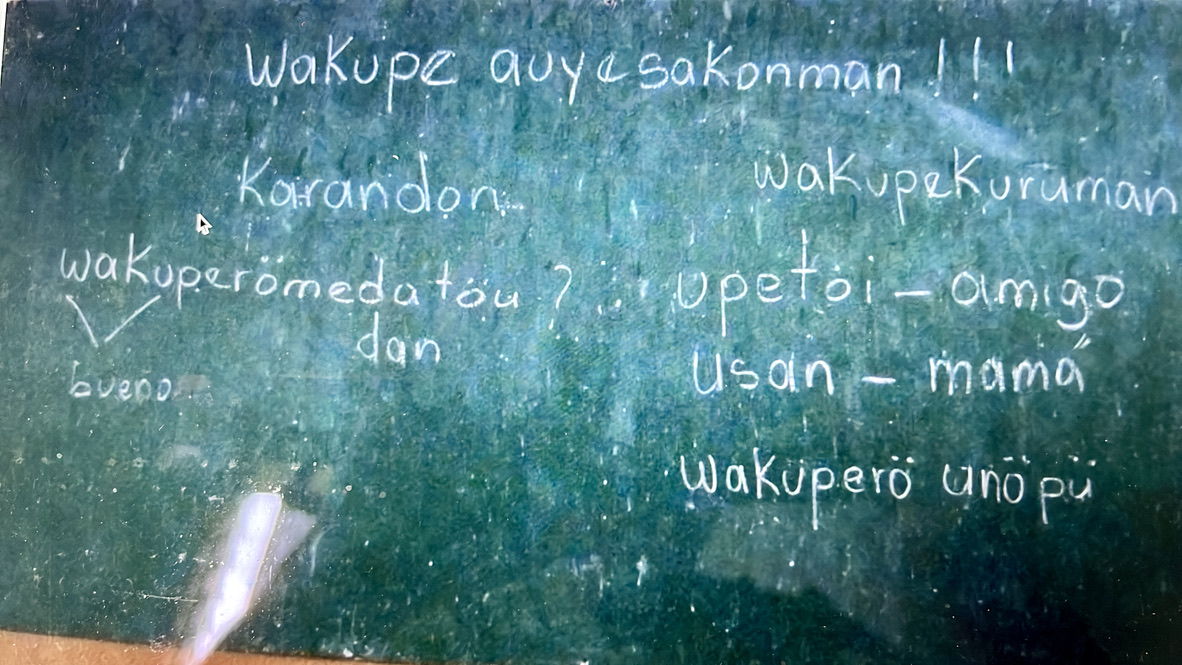 Wakupe auyesakonman !!!
Karandon
wakuperömedatöu ?
dan
bueno
wakupekuruman
upetoi - amigo
usan - mamá
wakuperö unöpü